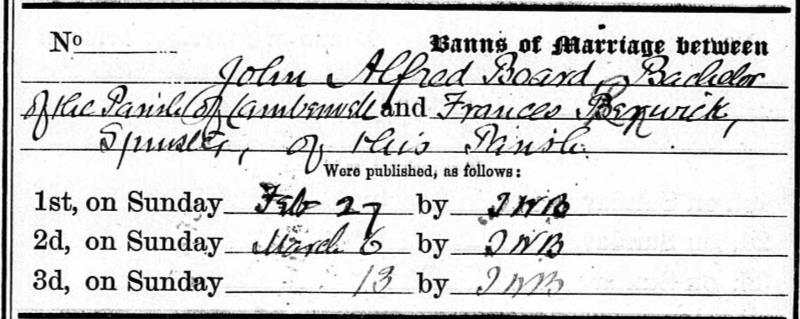 No Banns of Marriage between
John Alfred Board Bachelor
of the Parish of Camberwell and Frances Berwick,
Spinster, of this Parish.
Were published, as follows:
1st, on Sunday Feb 27 by JWB
2d, on Sunday March 6 by JWB
3d, on Sunday 13 by JWB